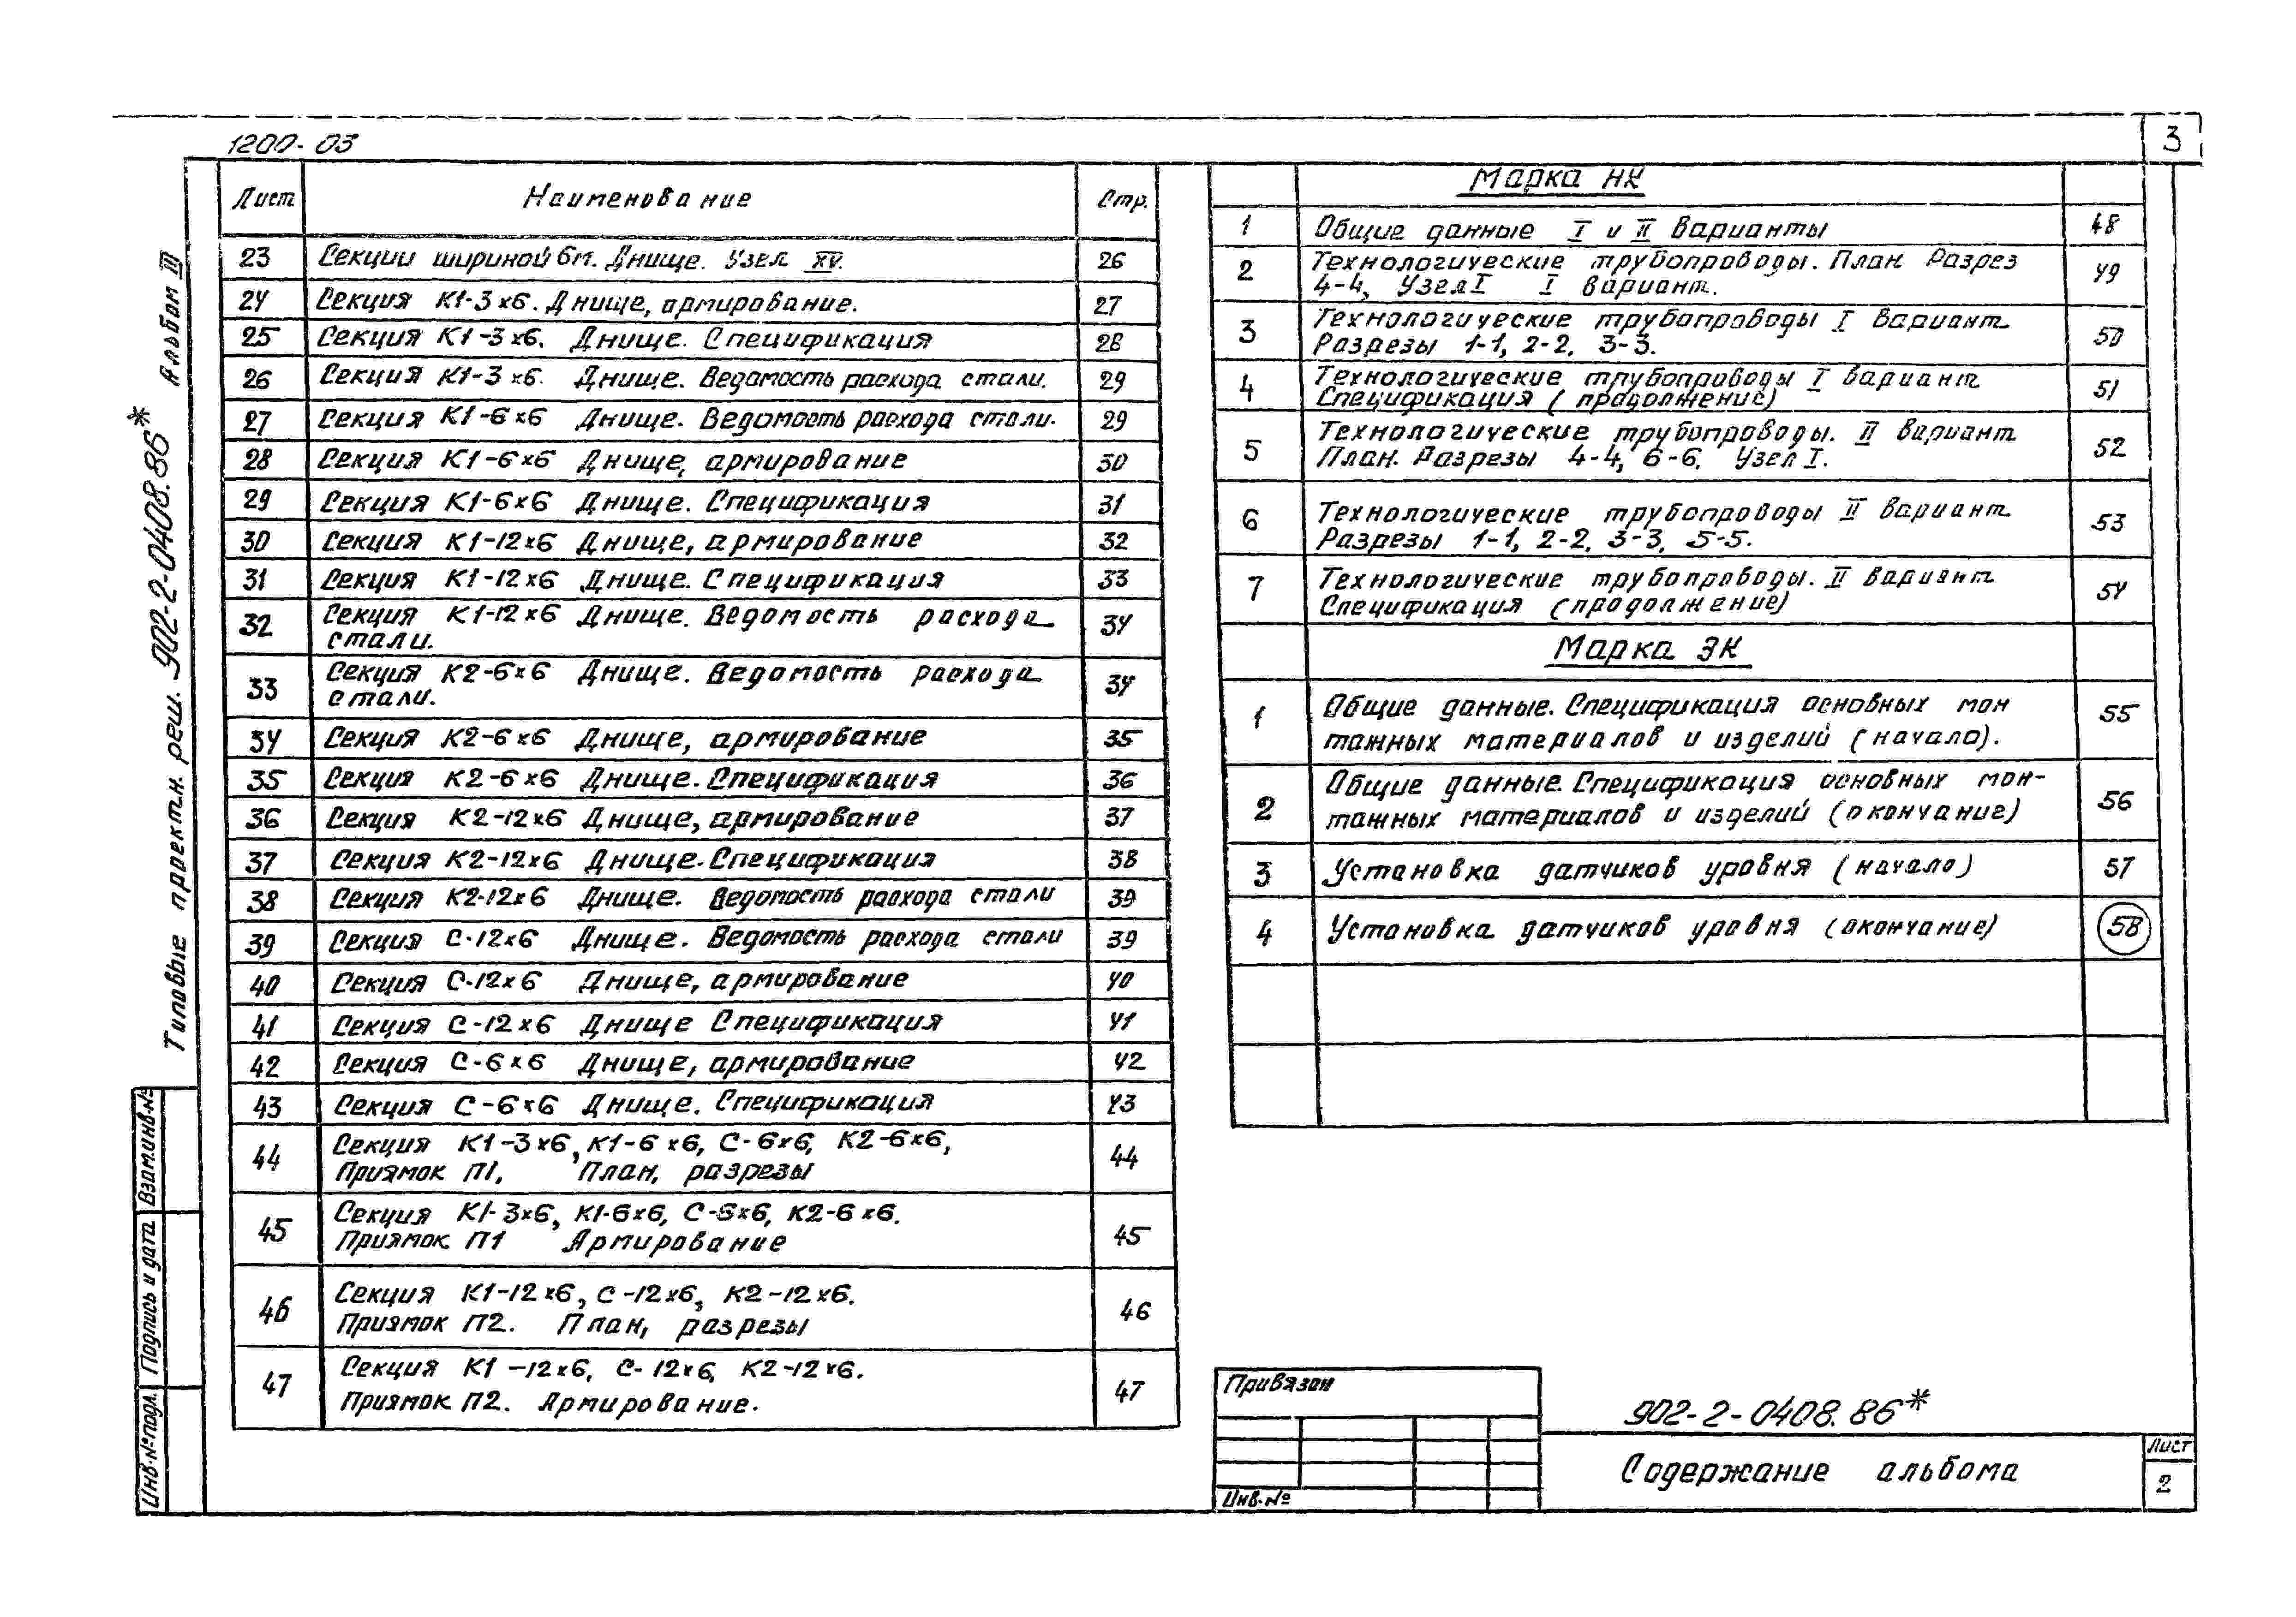 3
1200-03
Лист Наименование Стр.
23 Секции шириной 6м. Днище. Узел XV. 26
24 Секция К1-3х6. Днище, армирование. 27
25 Секция К1-3х6. Днище. Спецификация 28
26 Секция К1-3х6. Днище. Ведомость расхода стали. 29
27 Секция К1-6х6 Днище. Ведомость расхода стали. 29
28 Секция К1-6х6 Днище, армирование 30
29 Секция К1-6х6 Днище. Спецификация 31
30 Секция К1-12х6 Днище, армирование 32
31 Секция К1-12х6 Днище. Спецификация 33
32 Секция К1-12х6 Днище. Ведомость расхода 34
стали.
33 Секция К2-6х6 Днище. Ведомость расхода 34
стали.
34 Секция К2-6х6 Днище, армирование 35
35 Секция К2-6х6 Днище. Спецификация 36
36 Секция К2-12х6 Днище, армирование 37
37 Секция К2-12х6 Днище. Спецификация 38
38 Секция К2-12х6 Днище. Ведомость расхода стали 39
39 Секция С-12х6 Днище. Ведомость расхода стали 39
40 Секция С-12х6 Днище, армирование 40
41 Секция С-12х6 Днище Спецификация 41
42 Секция С-6х6 Днище, армирование 42
43 Секция С-6х6 Днище. Спецификация 43
44 Секция К1-3х6, К1-6х6, С-6х6, К2-6х6, 44
Приямок П1, План, разрезы
45 Секция К1-3х6, К1-6х6, С-6х6, К2-6х6. 45
Приямок П1 Армирование
46 Секция К1-12х6, С-12х6, К2-12х6. 46
Приямок П2. План, разрезы
47 Секция К1-12х6, С-12х6, К2-12х6. 47
Приямок П2. Армирование.
Марка НК
1 Общие данные I и II варианты 48
2 Технологические трубопроводы. План Разрез 49
4-4, Узел I I вариант.
3 Технологические трубопроводы I вариант 50
Разрезы 1-1, 2-2, 3-3.
4 Технологические трубопроводы I вариант 51
Спецификация (продолжение)
5 Технологические трубопроводы. II вариант 52
План. Разрезы 4-4, 6-6, Узел I.
6 Технологические трубопроводы II вариант 53
Разрезы 1-1, 2-2, 3-3, 5-5.
7 Технологические трубопроводы. II вариант 54
Спецификация (продолжение)
Марка ЭК
1 Общие данные. Спецификация основных мон 55
тажных материалов и изделий (начало).
2 Общие данные. Спецификация основных мон- 56
тажных материалов и изделий (окончание)
3 Установка датчиков уровня (начало) 57
4 Установка датчиков уровня (окончание) 58
Типовые проектн. реш. 902-2-0408.86* Альбом III
Взам.инв.№
Подпись и дата
Инв.№подл.
Привязан
Инв.№
902-2-0408.86*
Содержание альбома
Лист
2